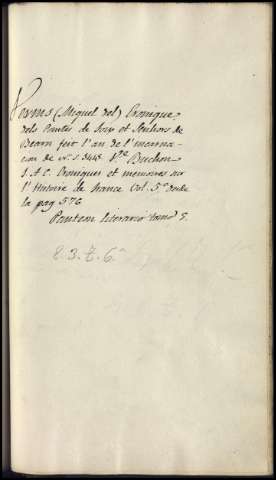 Verms (Miquel del) Cronique
dels Contes de Foix et Senhors de
Bearn feit l'an de l'incarna-
cion de N. S. 1445. Vᵉ Buchon
J. A. C. Croniques et memoires sur
l'Histoire de france Vol. 5º desde
la pag 576
Panteon literario tomo 5.
8. 3. Z. 6ª